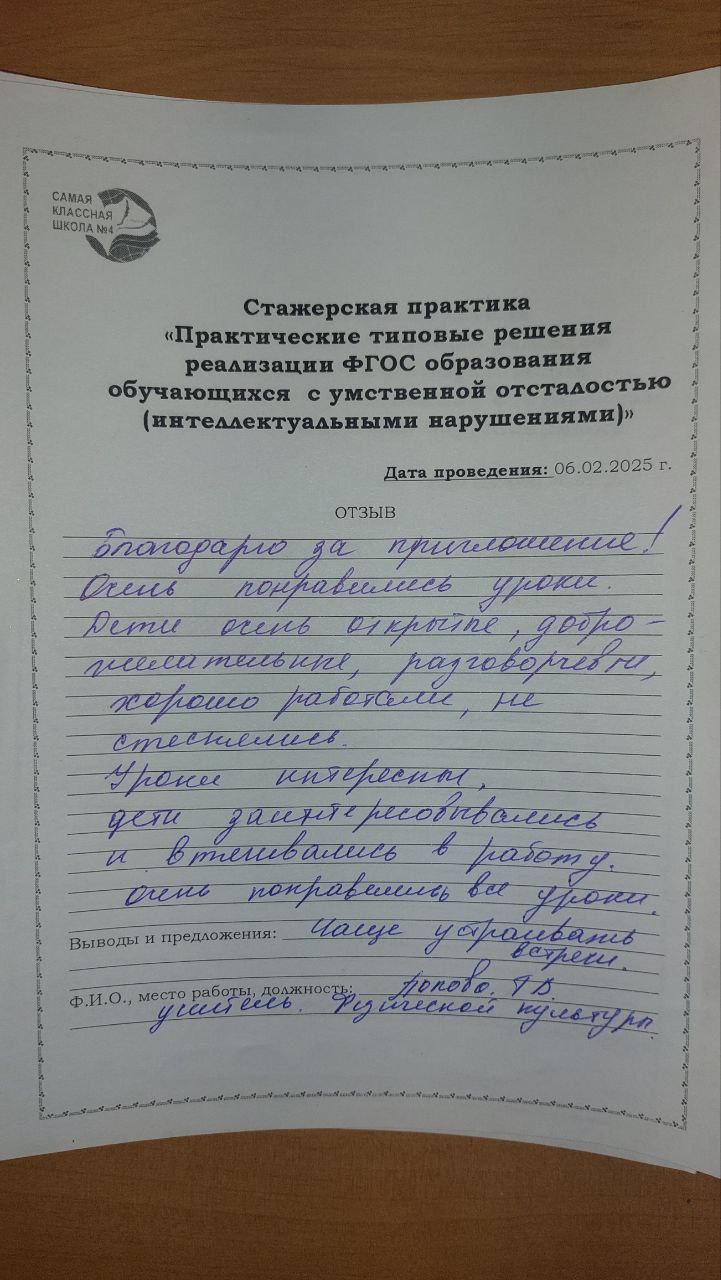 САМАЯ
КЛАССНАЯ
ШКОЛА №4
Стажерская практика
«Практические типовые решения
реализации ФГОС образования
обучающихся с умственной отсталостью
(интеллектуальными нарушениями)»
Дата проведения: 06.02.2025 г.
ОТЗЫВ
Благодарю за приглашение!
Очень понравились уроки.
Дети очень открытые, добро-
желательные, разговорчивы,
хорошо работали, не
стеснялись.
Уроки интересны,
дети заинтересовывались
и втягивались в работу.
очень понравились все уроки.
Выводы и предложения: Чаще устраивать
встречи.
Ф.И.О., место работы, должность: Попова. Г В
учитель. Физической культуры.